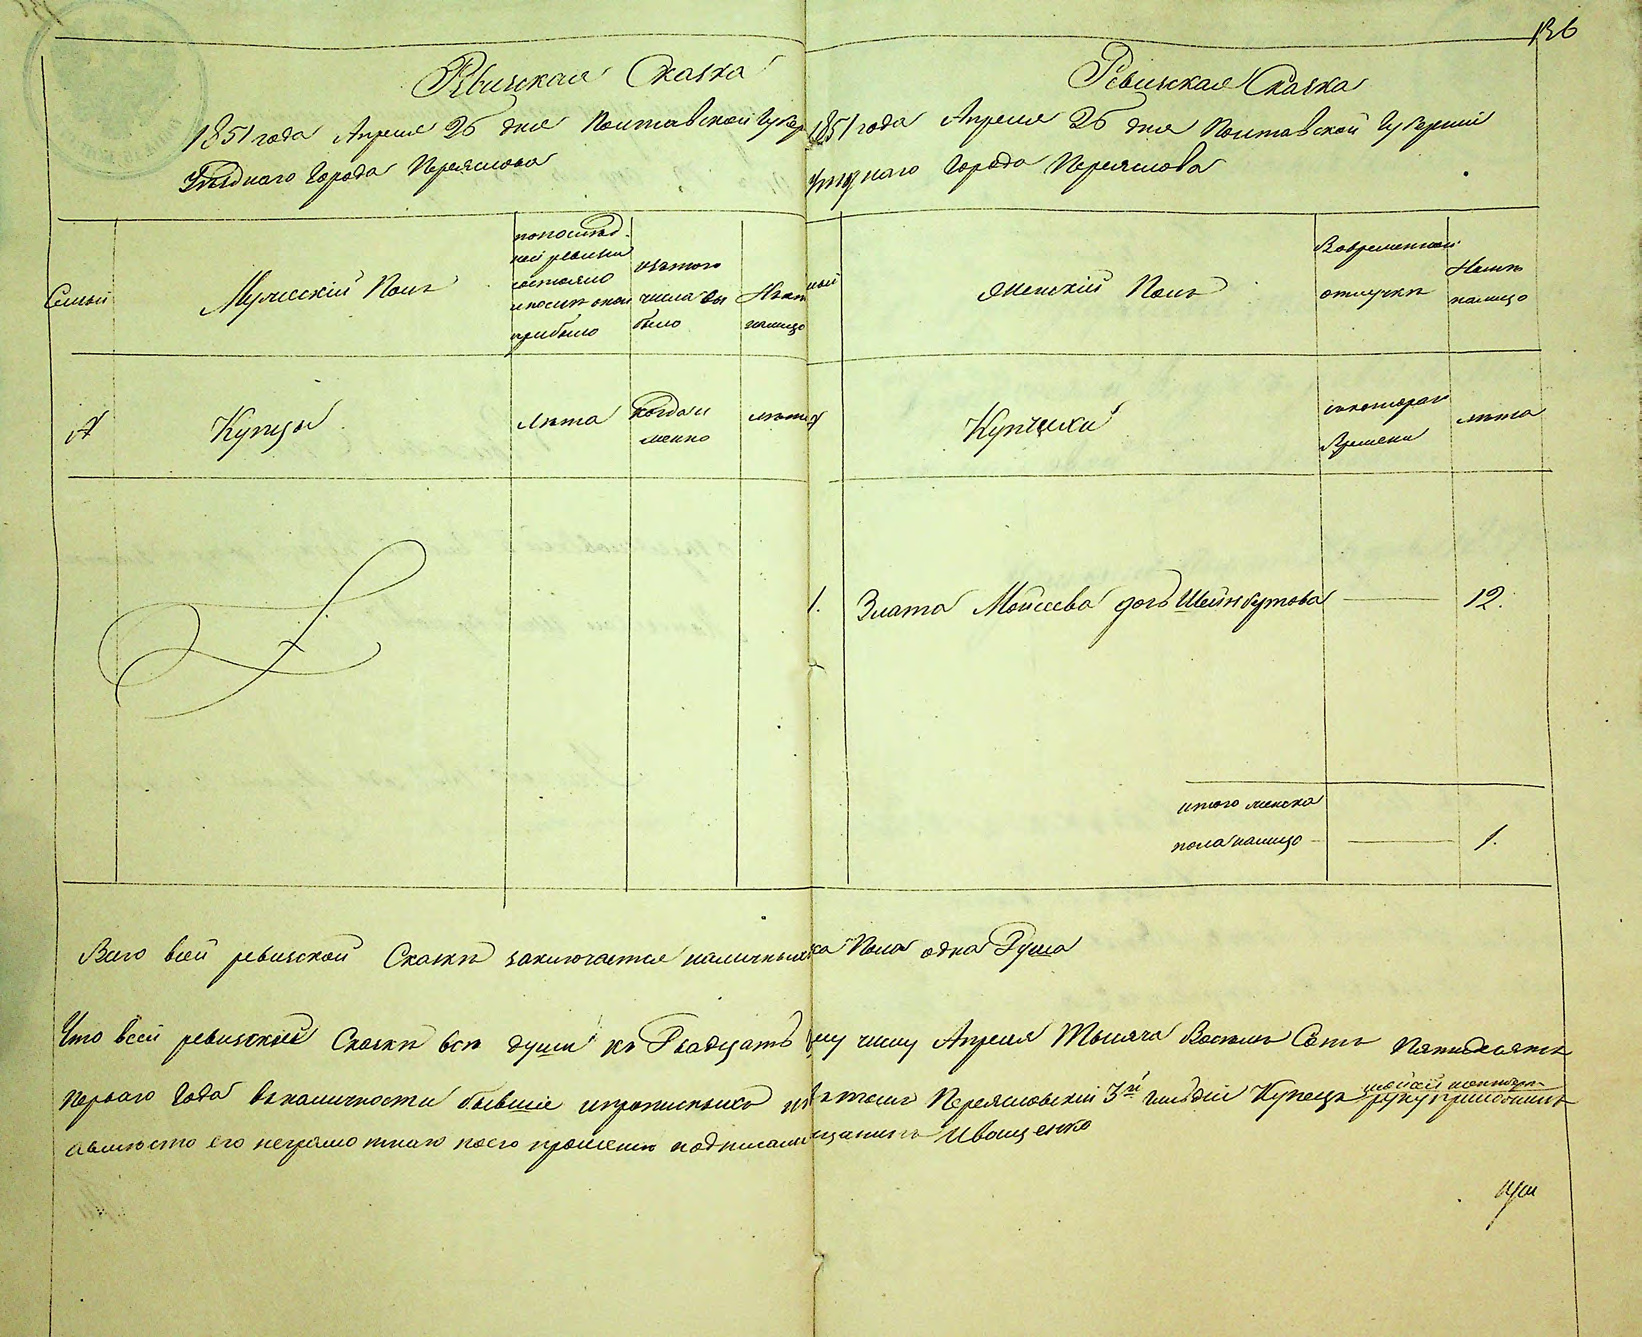 136
Ревизская Сказка
1851 года Апреля 26 дня Полтавской Губер
Уездного Города Переяслова
Ревизская Сказка
1851 года Апреля 26 дня Полтавской Губернии
Уезднаго Города Переяслова
Семьи
Мужескій Полъ
по послед-
ней ревизіи
состояло
и после оной
прибыло
изъ того
числа вы
было
Ныне
налицо
Женскій Полъ
Вовременной
отлучке
Ныне
налицо
№
Купцы
лета
когда и
менно
лета
Купчихи
съ котораго
Времени
лета
1. Злата Мойсеева дочь Шейнбутова 12.
итого женска
пола налицо 1.
Всего всей ревизской Сказке заключается наличныхъ ка Пола одна Душа
Что всей ревизской Сказке все души къ Двадцать му числу Апреля Тысяча Восемь Сотъ Пятьдесятъ
перваго Года въ наличности бывшіе и прописныхъ Переясловскій 3й гильдіи Купецъ
авместо его неграмотнаго по его прошенію подписалъ щанинъ Иващенко